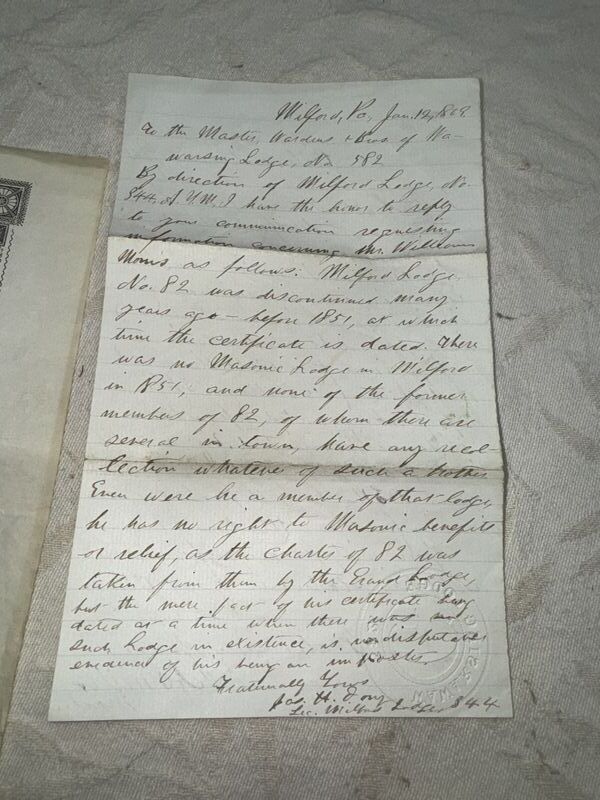 Milford, Pa, Jan. 12, 1869.
To the Master, Wardens & Bros. of Wa-
warsing Lodge, No. 582
By direction of Milford Lodge, No
344, A.Y.M. I have the honor to reply
to your communication requesting
information concerning Mr. William
Morris as follows: Milford Lodge,
No. 82 was discontinued many
years ago - before 1851, at which
time the certificate is dated. There
was no Masonic Lodge in Milford
in 1851, and none of the former
members of 82, of whom there are
several in town, have any recol-
lection whatever of such a brother
Even were he a member of that lodge,
he has no right to Masonic benefits
or relief, as the charter of 82 was
taken from them by the Grand Lodge,
but the mere fact of his certificate being
dated at a time when there was no
such Lodge in existence, is indisputable
evidence of his being an imposter.
Fraternally Yours
Jas. H.
Sec. Milford Lodge 344